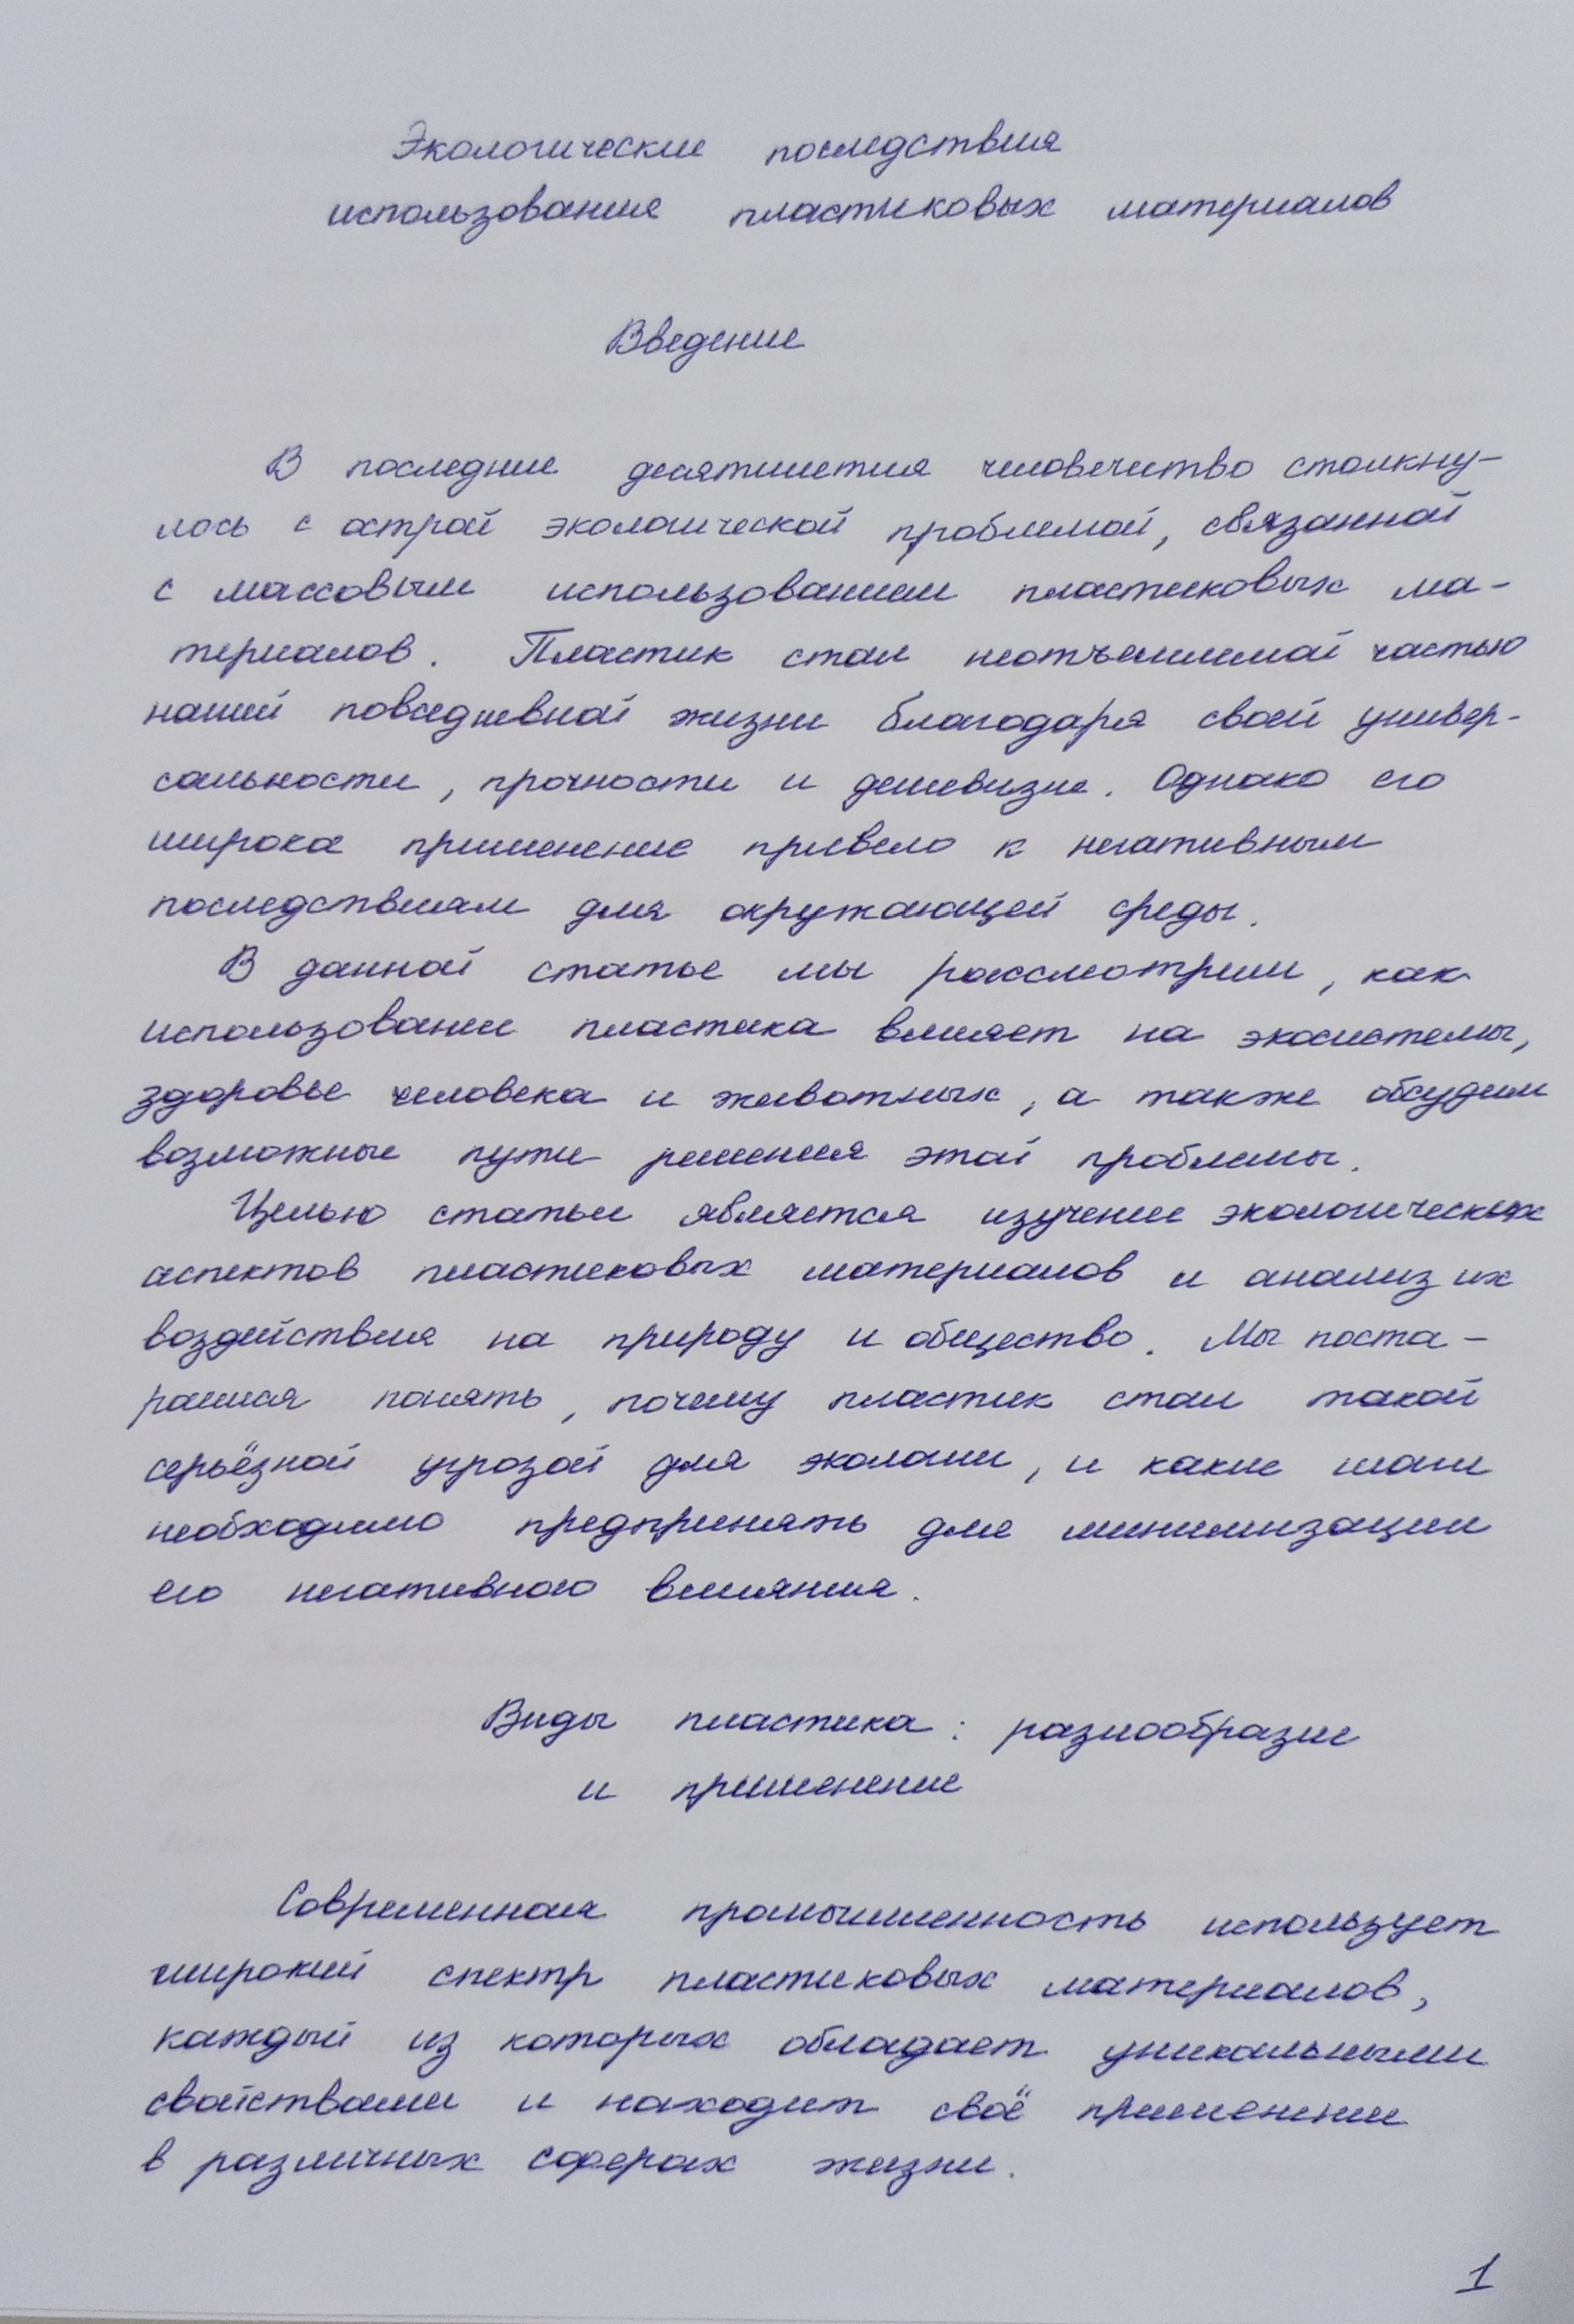 Экологические последствия
использования пластиковых материалов
Введение
В последние десятилетия человечество столкну-
лось с острой экологической проблемой, связанной
с массовым использованием пластиковых ма-
териалов. Пластик стал неотъемлемой частью
нашей повседневной жизни благодаря своей универ-
сальности, прочности и дешевизне. Однако его
широкое применение привело к негативным
последствиям для окружающей среды.
В данной статье мы рассмотрим, как
использование пластика влияет на экосистемы,
здоровье человека и животных, а также обсудим
возможные пути решения этой проблемы.
Целью статьи является изучение экологических
аспектов пластиковых материалов и анализ их
воздействия на природу и общество. Мы поста-
раемся понять, почему пластик стал такой
серьёзной угрозой для экологии, и какие шаги
необходимо предпринять для минимизации
его негативного влияния.
Виды пластика: разнообразие
и применение
Современная промышленность использует
широкий спектр пластиковых материалов,
каждый из которых обладает уникальными
свойствами и находит своё применение
в различных сферах жизни.
1